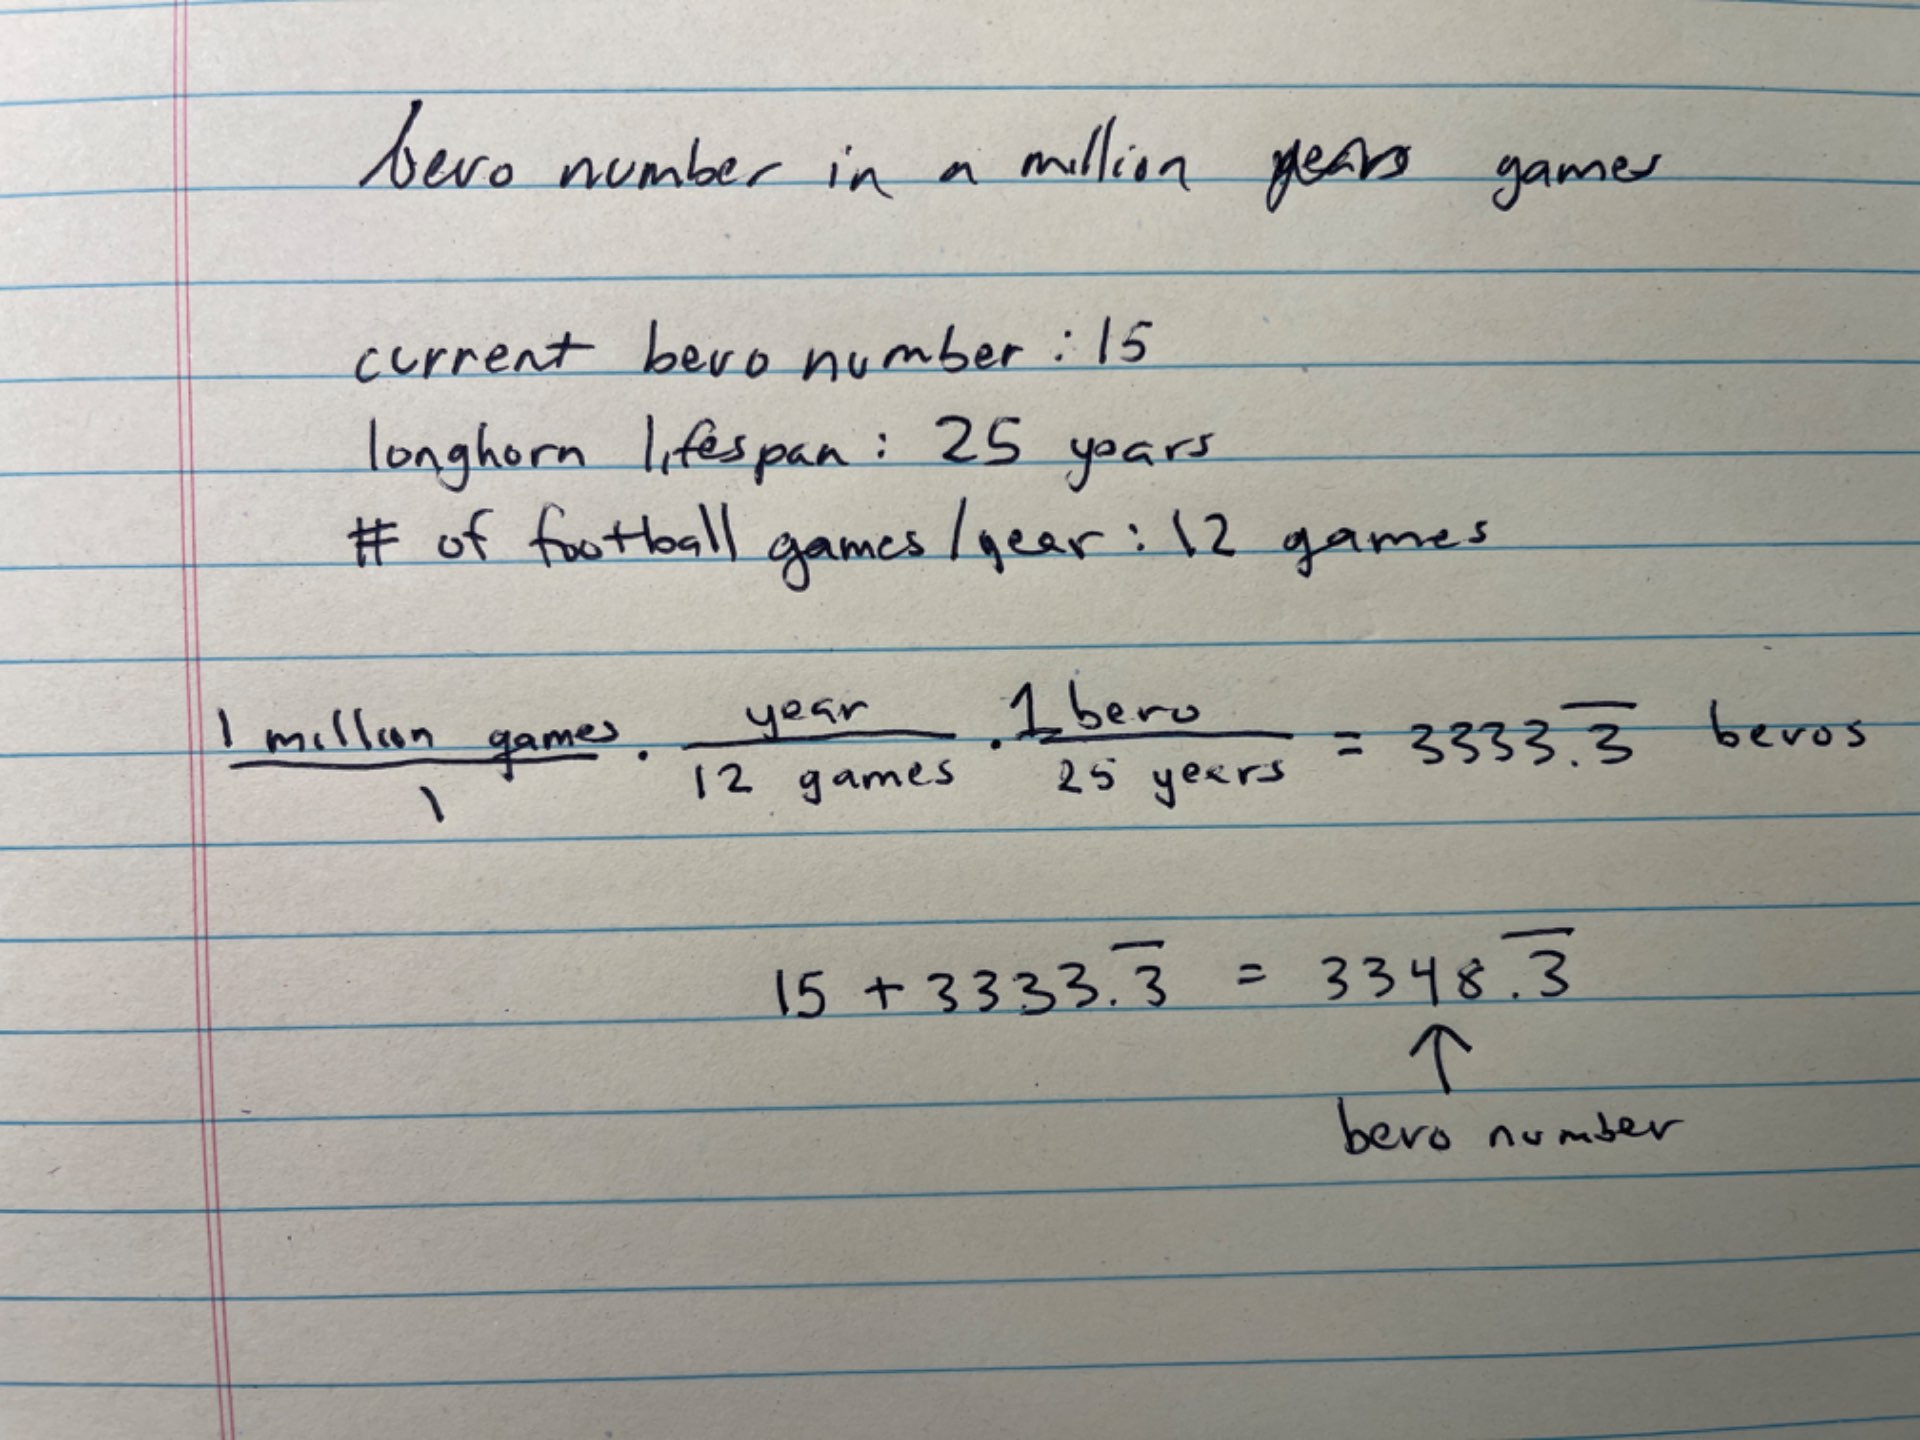 bevo number in a million years games
current bevo number : 15
longhorn lifespan : 25 years
# of football games/year : 12 games
1 million games / 1 · year / 12 games · 1 bevo / 25 years = 3333.3̅ bevos
15 + 3333.3̅ = 3348.3̅
↑
bevo number